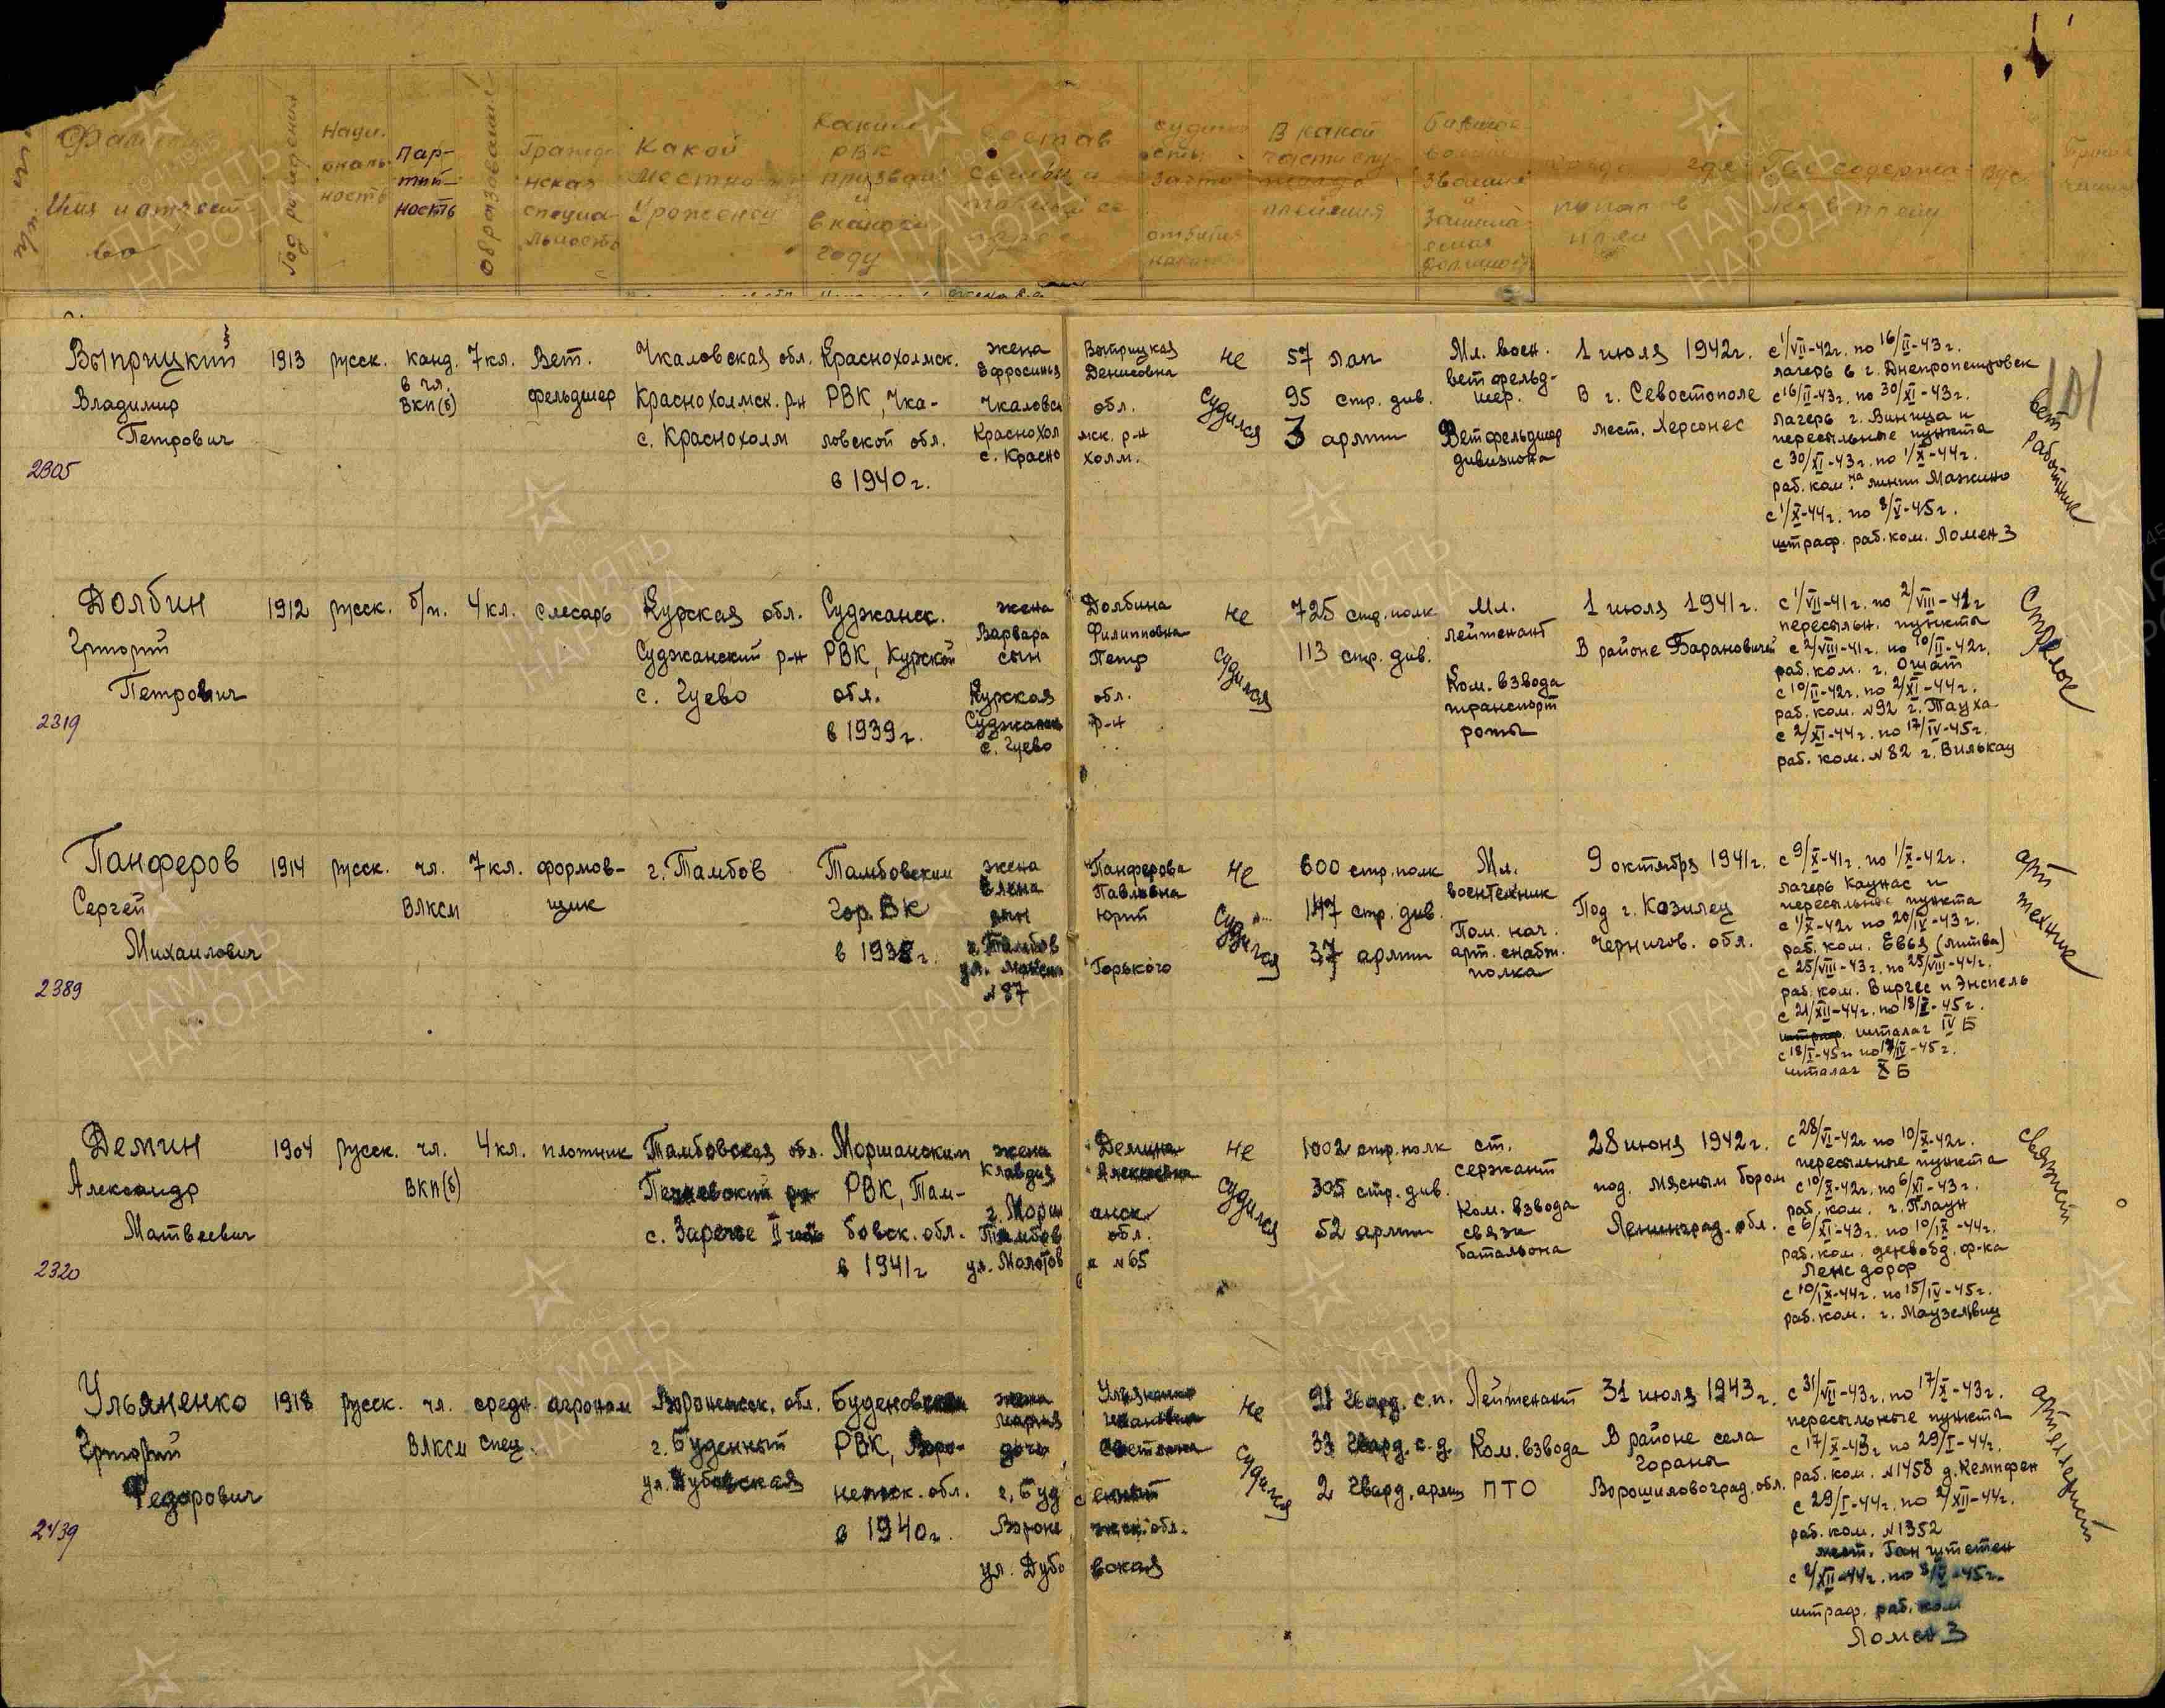 Фам
Имя и отчест-
во
Год рождения
Наци.
ональ-
ность
пар-
тий-
ность
образование
Гражда
нская
специа-
льность
Какой
местно
Уроженец
Каким
РВК
призван
и
в каком
году
состав
семьи и
В какой
части слу-
жил до
пленения
звание
и
когда где
попал в
плен
Где содержа-
лся в плену
Выприцкий
Владимир
Петрович
2305
1913
русск.
канд.
в чл.
ВКП(б)
7 кл.
Вет.
фельдшер
Чкаловская обл.
Краснохолмск. р-н
с. Краснохолм
Краснохолмск.
РВК, Чка-
ловской обл.
в 1940 г.
жена Выприцкая
Ефросинья Денисовна
Чкаловск обл.
Краснохолмск. р-н
с. Краснохолм.
не
судился
57 лап
95 стр. див.
3 армии
Мл. воен.
ветфельд-
шер.
Ветфельдшер
дивизиона
1 июля 1942 г.
В г. Севостополе
мест. Херсонес
с 1/VII-42г. по 16/II-43г.
лагерь в г. Днепропетровск
с 16/II-43г. по 30/XI-43г.
лагерь г. Виница и
пересыльные пункта
с 30/XI-43г. по 1/X-44г.
раб. ком. на линии Мажино
с 1/X-44г. по 8/V-45г.
штраф. раб. ком. Ломен 3
вет работник
Долбин
Григорий
Петрович
2319
1912
русск.
б/п.
4 кл.
слесарь
Курская обл.
Суджанский р-н
с. Гуево
Суджанск.
РВК, Курской
обл.
в 1939 г.
жена Долбина
Варвара Филипповна
сын Петр
Курская обл.
Суджанск р-н
с. Гуево
не
судился
725 стр. полк
113 стр. див.
Мл.
лейтенант
Ком. взвода
транспорт
роты
1 июля 1941 г.
В районе Барановичей
с 1/VII-41г. по 2/VIII-41г
пересыльн. пункта
с 2/VIII-41г. по 10/II-42г.
раб. ком. г. Ошат
с 10/II-42г. по 2/XI-44г.
раб. ком. №92 г. Тауха
с 2/XI-44г. по 17/IV-45г.
раб. ком. №82 г. Вилькау
Стрелок
Панферов
Сергей
Михаилович
2389
1914
русск.
чл.
ВЛКСМ
7 кл.
формов-
щик
г. Тамбов
Тамбовским
Гор. ВК
жена Панферова
Елена Павловна
сын Юрий
г. Тамбов
ул. Максим Горького
№ 87
не
судился
600 стр. полк
147 стр. див.
37 армии
Мл.
воентехник
Пом. нач.
арт. снабж.
полка
9 октября 1941 г.
Под г. Козилец
Чернигов. обл.
с 9/X-41г. по 1/X-42г.
лагерь Каунас и
пересыльные пункта
с 1/X-42г по 20/IV-43г.
раб. ком. Евья (литва)
с 25/VIII-43г. по 25/VIII-44г.
раб. ком. Виргес и Энспель
с 21/XII-44г. по 18/I-45г.
шталаг IV Б
с 18/I-45г. по 17/IV-45г.
шталаг X Б
арт техник
Демин
Александр
Матвеевич
2320
1904
русск.
чл.
ВКП(б)
4 кл.
плотник
Тамбовская обл.
с. Заречье II
Моршанским
РВК, Там-
бовск. обл.
в 1941 г
жена Демина
Клавдия Алексеевна
г. Моршанск
Тамбов обл.
ул. Молотова №65
не
судился
1002 стр. полк
305 стр. див.
52 армии
ст.
сержант
Ком. взвода
связи
батальона
28 июня 1942 г.
под. мясным бором
Ленинград. обл.
с 28/VI-42г по 10/X-42г.
пересыльные пункта
с 10/X-42г. по 6/XI-43г.
раб. ком. г. Плаун
с 6/XI-43г. по 10/IX-44г.
раб. ком. деревобд. ф-ка
Ленсдорф
с 10/IX-44г. по 15/IV-45г.
раб. ком. г. Маузельвиц
связист
Ульяненко
Григорий
Федорович
2439
1918
русск.
чл.
ВЛКСМ
средн.
спец.
агроном
Воронежск. обл.
г. Буденный
ул. Дубовская
Буденовским
РВК, Воро-
нежск. обл.
в 1940 г.
жена Ульяненко
Мария Ивановна
дочь Светлана
г. Буденный
Воронежск. обл.
ул. Дубовская
не
судился
91 гвард. с.п.
33 гвард. с.д.
2 гвард. армии
Лейтенант
Ком. взвода
ПТО
31 июля 1943 г.
В районе села
Гораны
Ворошиловоград. обл.
с 31/VII-43г. по 17/X-43г.
пересыльные пункта
с 17/X-43г по 29/I-44г.
раб. ком. №1458 д. Кемпфен
с 29/I-44г. по 2/XII-44г.
раб. ком. №1352
мест. Ганштетен
с 2/XII-44г. по 8/V-45г.
штраф. раб. ком
Ломен 3
артиллерист
ПАМЯТЬ
НАРОДА